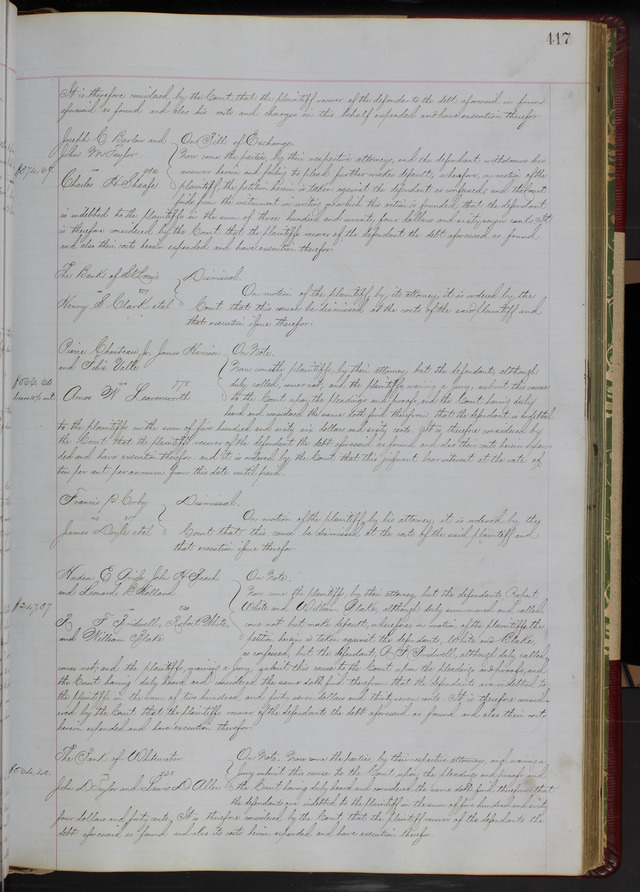 417
It is therefore considered by the Court that the plaintiff recover of the defendants the debt aforesaid in form
aforesaid as found and also his costs and charges in this behalf expended and have execution therefor.
Joseph C Barlow and
John W Taylor
vs
Charles H Sheafe
$374.67
On Bill of Exchange.
Now come the parties, by their respective attorneys, and the defendant withdraws his
answer herein and failing to plead further makes default; wherefore, on motion of the
plaintiffs, the petition herein is taken against the defendant as confessed; and the Court
finds from the instrument in writing on which the action is founded, that the defendant
is indebted to the plaintiffs in the sum of three hundred and seventy four dollars and sixty seven cents. It
is therefore considered by the Court that the plaintiffs recover of the defendant the debt aforesaid as found
and also their costs herein expended and have execution therefor.
The Bank of St Louis
vs
Henry S. Clark et al
Dismissal.
On motion of the plaintiff, by its attorney, it is ordered by the
Court that this cause be dismissed at the costs of the said plaintiff and
that execution issue therefor.
Pierre Chouteau Jr, James Harrison
and Felix Valle
vs 778
Amos W Leavenworth
$566.60
On Note.
Now come the plaintiffs, by their attorney, but the defendant, although
duly called, comes not; and the plaintiffs waiving a jury, submit this cause
to the Court upon the pleadings and proofs, and the Court having duly
heard and considered the same doth find therefrom that the defendant is indebted
to the plaintiffs in the sum of five hundred and sixty six dollars and sixty cents. It is therefore considered by
the Court that the plaintiffs recover of the defendant the debt aforesaid as found and also their costs herein expen-
ded and have execution therefor. and it is ordered by the Court that this judgment bear interest at the rate of
ten per cent per annum from this date until paid.
Francis P. Corby
vs
James Doyle et al
Dismissal.
On motion of the plaintiff, by his attorney, it is ordered by the
Court that this cause be dismissed at the costs of the said plaintiff and
that execution issue therefor.
John H
and Leonard Holland
vs
R F Tridwell, Robert White
and William Blake
$247.37
On Note.
Now come the plaintiffs, by their attorney, but the defendants Robert
White and William Blake, although duly summoned and called
come not but make default; wherefore on motion of the plaintiffs the
petition herein is taken against the defendants, White and Blake,
as confessed; but the defendant, R. F. Tridwell, although duly called,
comes not; and the plaintiffs, waiving a jury, submit this cause to the Court upon the pleadings and proofs, and
the Court having duly heard and considered the same doth find therefrom that the defendants are indebted to
the plaintiffs in the sum of two hundred and forty seven dollars and thirty seven cents. It is therefore consid-
ered by the Court that the plaintiffs recover of the defendants the debt aforesaid as found and also their costs
herein expended and have execution therefor.
The Bank of Whitewater
vs
John D Taylor and Lewis D Allen
$564.40
On Note. Now come the parties by their respective attorneys, and waiving a
jury submit this cause to the Court upon the pleadings and proofs and
the Court having duly heard and considered the same doth find therefrom that
the defendants are indebted to the plaintiff in the sum of five hundred and sixty
four dollars and forty cents. It is therefore considered by the Court, that the plaintiff recover of the defendants the
debt aforesaid as found and also its costs herein expended and have execution therefor.